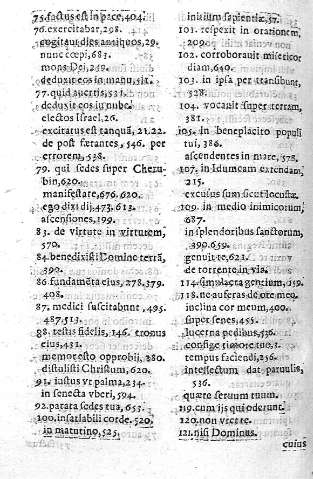 75. factus est in pace, 404.
76. exercitabar, 298.
cogitaui dies antiquos, 29.
nunc cœpi, 683.
mons Dei, 249.
deduxit eos in manu, 511.
77. quid auertit, 531.
deduxit eos in nube.
electos Israel. 26.
excitatus est tanquã, 21.22.
de post fœtantes, 546. per
errorem, 538.
79. qui sedes super Cheru-
bin, 620.
manifestare, 676. 620.
ego dixi dij, 473. 613.
ascensiones, 199.
83. de virtute in virtutem,
570.
84. benedixisti Domine terrã,
390.
86 fundamẽta eius, 278. 379.
408.
87. medici suscitabunt, 495.
487. 513.
88. testis fidelis, 146. tronus
eius, 431.
memor esto opprobij, 280.
distulisti Christum, 620.
91. iustus vt palma, 234.
in senecta vberi, 594.
92. parata sedes tua, 653.
100. insatiabili corde. 520.
in matutino, 525.
initium sapientiæ, 57.
101. respexit in orationem,
209.
102. corroborauit misericor
diam, 640.
103. in ipsa pertransibunt,
528.
104. vocauit super terram,
381.
105. In beneplacito populi
tui, 386.
ascendentes in mare, 578.
107. in Idumeam extendam,
215.
excusus sum sicut locustæ.
109. in medio inimicorum,
687.
in splendoribus sanctorum,
390. 659.
genui te, 621.
de torrente in via.
114. simulacra gentium, 359.
118. ne auferas de ore meo.
inclina cor meum, 400.
super senes, 455.
lucerna pedibus, 436.
confige timore tuo, 3.
tempus faciendi, 256.
intellectum dat paruulis,
536.
quære seruum tuum.
119. cum ijs qui oderunt.
120. non vret te.
121. nisi Dominus.
cuius